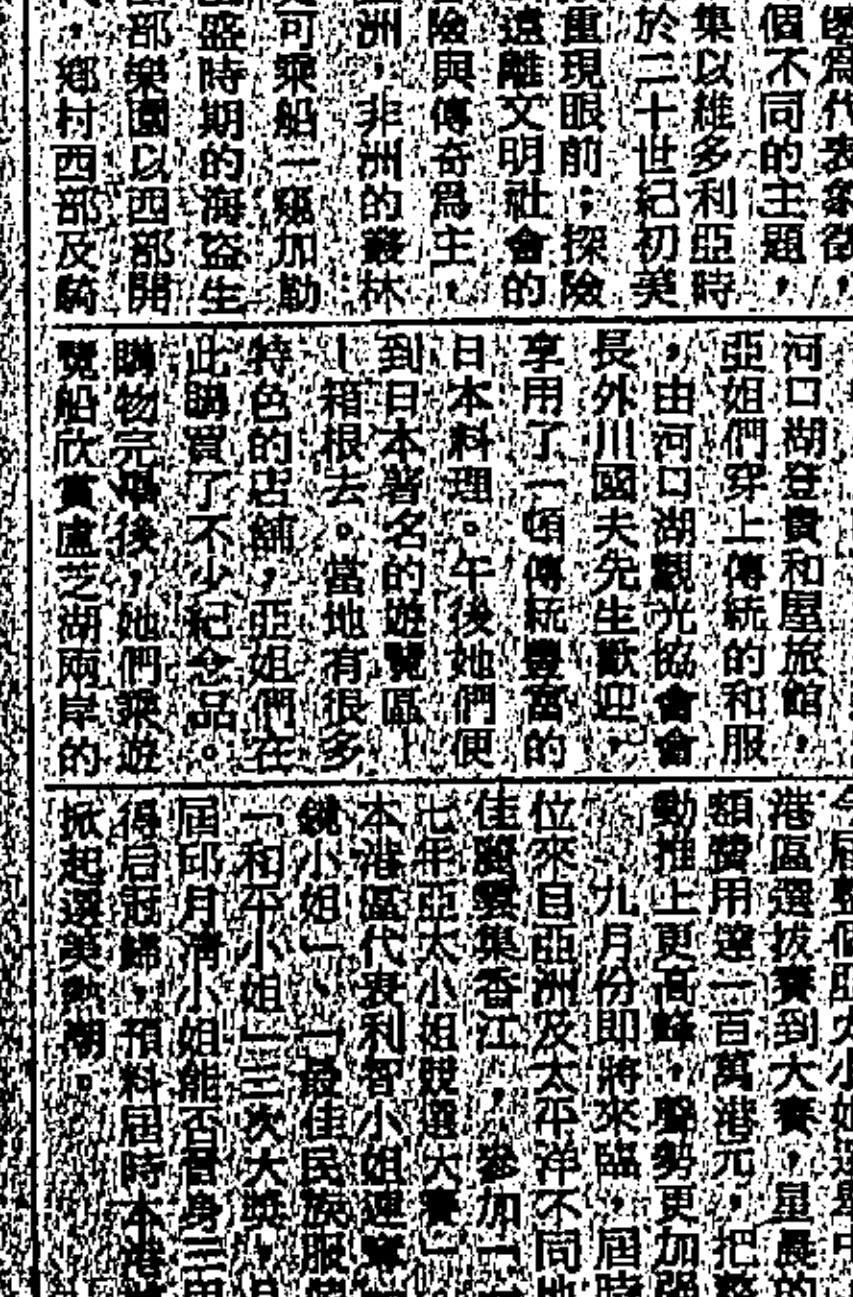 爲代表象徵，
個不同的主題，
集以維多利亞時
於二十世紀初美
重現眼前；探險
遠離文明社會的
險與傳奇爲主，
洲，非洲的叢林
可乘船一窺加勒
盛時期的海盜生
部樂園以西部開
，鄉村西部及騎
河口湖登貴和屋旅館，
亞姐們穿上傳統的和服
，由河口湖觀光協會會
長外川國夫先生歡迎，
享用了一頓傳統豐富的
日本料理。午後她們便
到日本著名的遊覽區—
—箱根去。當地有很多
特色的店舖，亞姐們在
此購買了不少紀念品。
購物完畢後，她們乘遊
覽船欣賞盧芝湖兩岸的
今屆整個亞太小姐選舉中
港區選拔賽到大賽，星晨的
額費用達二百萬港元，把整
動推上更高峰，聲勢更加强
九月份即將來臨，屆時
位來自亞洲及太平洋不同地
佳麗雲集香江，參加「一
七年亞太小姐競選大賽」
本港區代表利智小姐連奪「
鏡小姐」、「最佳民族服
「和平小姐」三次大獎，
屆邱月清小姐能否晋身三甲
得后冠歸，預料屆時本港將
掀起選美熱潮。